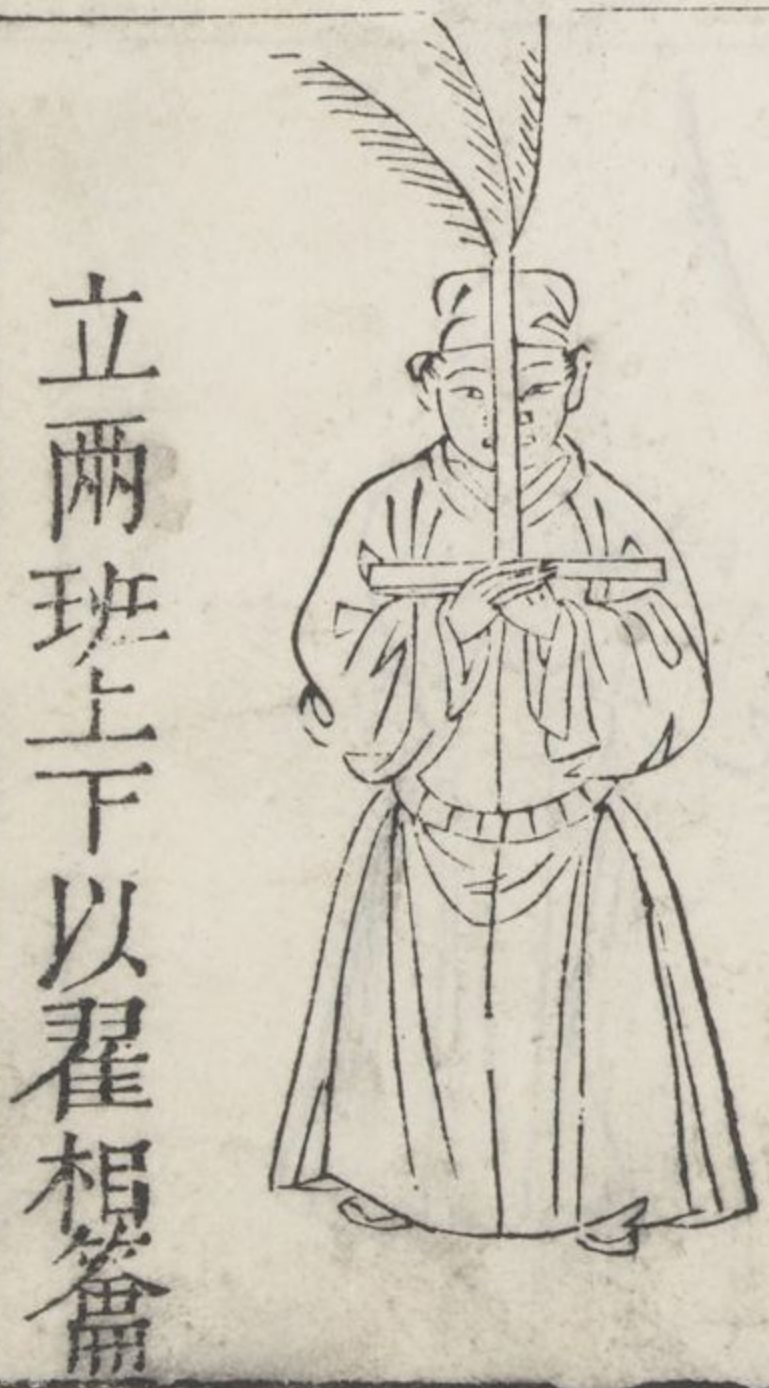 立兩班上下以翟相籥